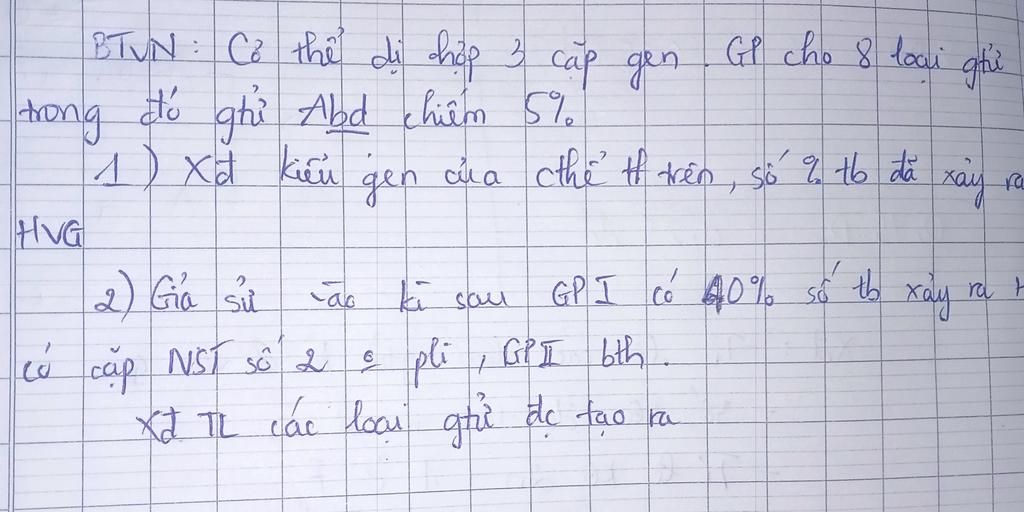 BTVN: Cơ thể dị hợp 3 cặp gen. GP cho 8 loại gtử
trong đó gtử Abd chiếm 5%
1) Xđ kiểu gen của cthể trên, số % tb đã xảy ra
HVG
2) Giả sử vào kì sau GP I có 40% số tb xảy ra H
có cặp NST số 2 o pli, GP II bth.
Xđ TL các loại gtử đc tạo ra